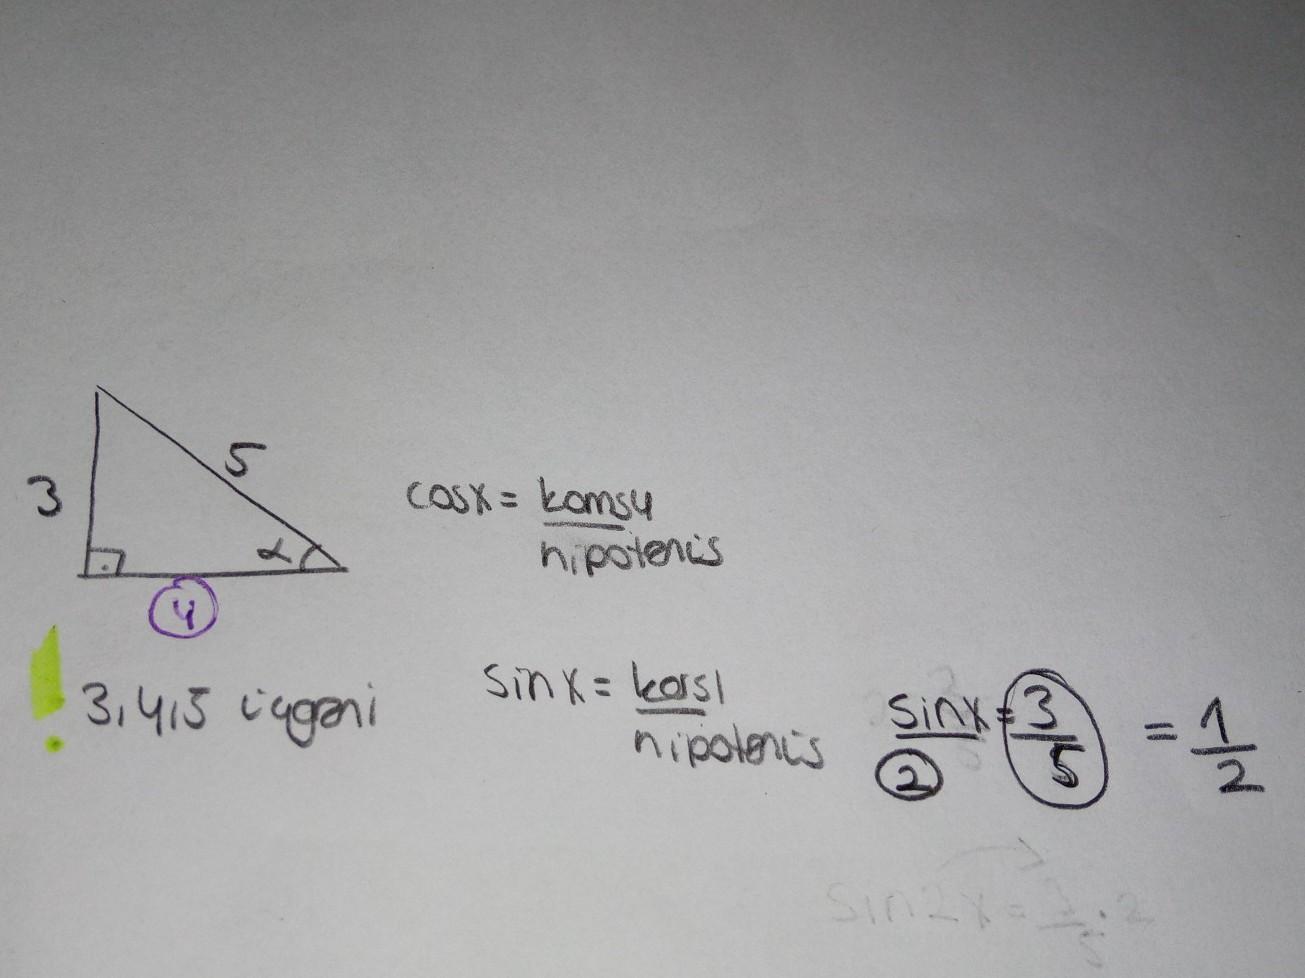 3
5
α
4
cosx = komsu
hipotenüs
! 3,4,5 üçgeni
sinx = karsı
hipotenüs
sinx/2 = 3/5 = 1/2
sin2x = 3/5 . 2